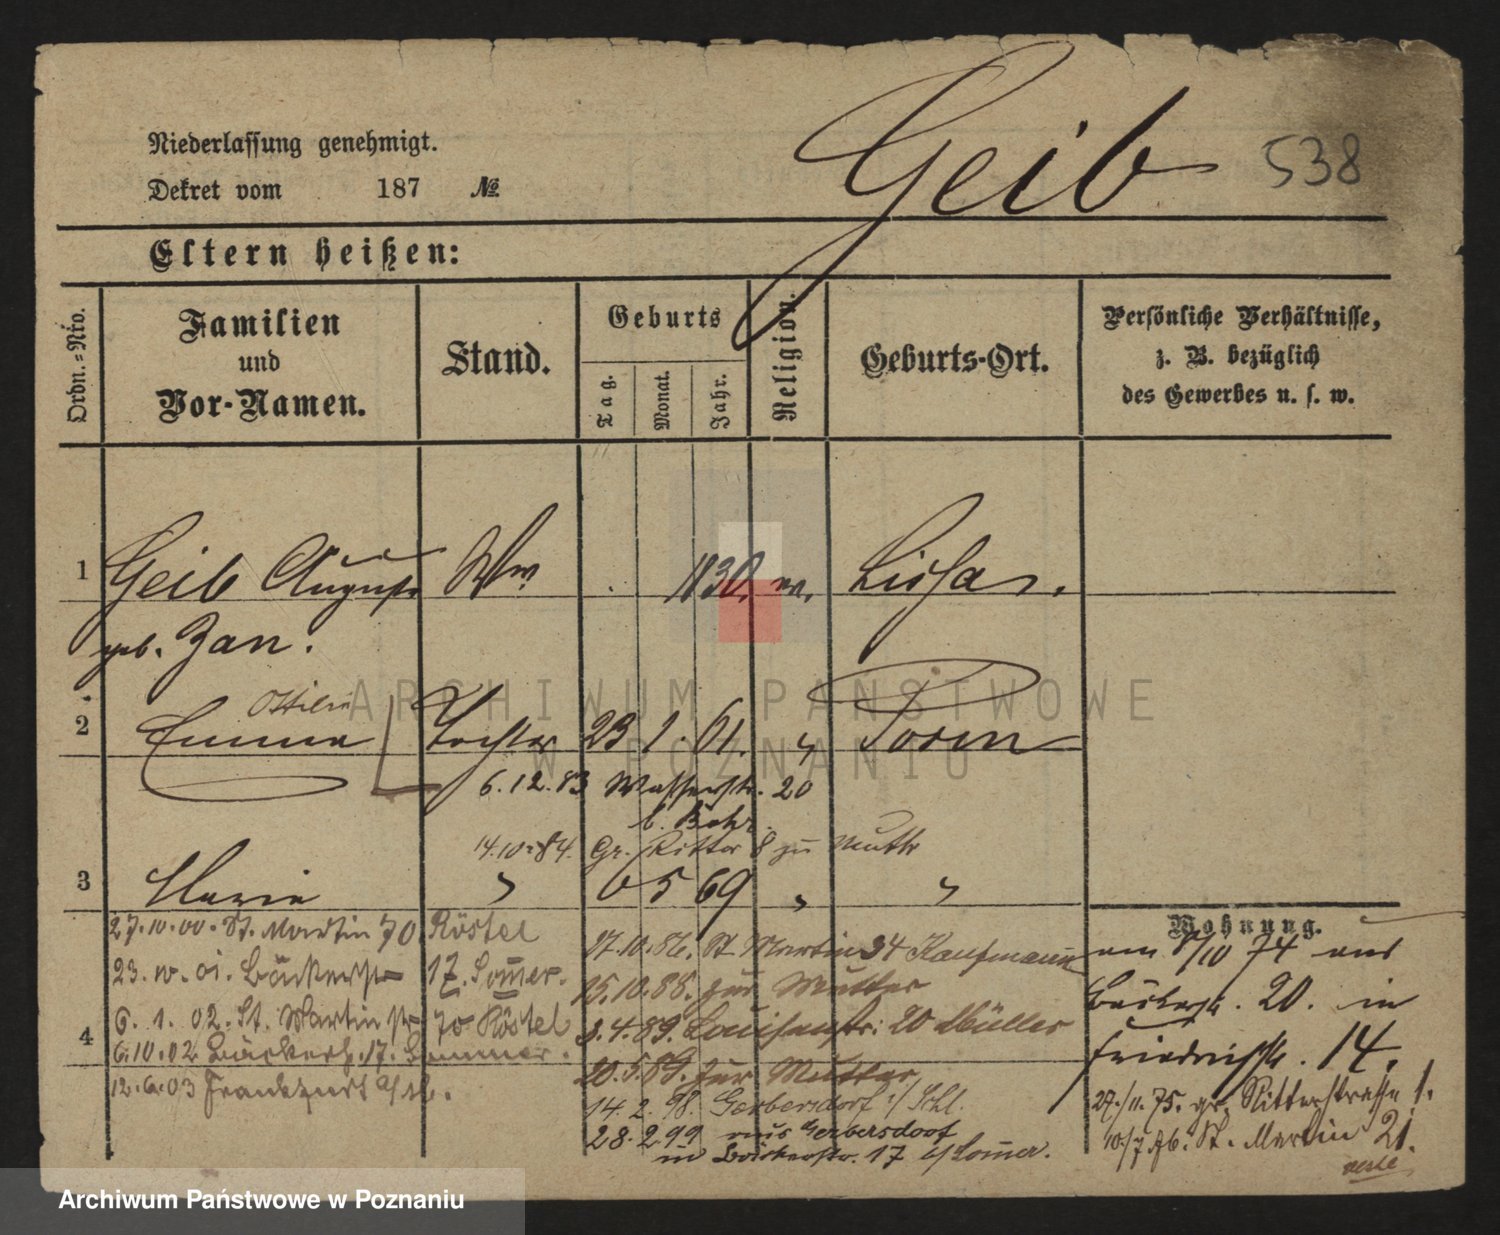 Geib 538
Niederlassung genehmigt.
Dekret vom 187 №
Eltern heißen:
Ordn.=Nro.
Familien
und
Vor-Namen.
Stand.
Geburts
Tag.
Monat.
Jahr.
Religion.
Geburts-Ort.
Persönliche Verhältnisse,
z. B. bezüglich
des Gewerbes u. s. w.
1 Geib August Ww. 1830. ev. Lissa.
geb. Zan.
Ottilie
2 Emma Tochter 23 1. 61. " Posen
6.12.83 Wasserstr. 20
b. Behr.
14.10.84. Gr. Ritter 8 zu Mutter
3 Maria " 6 5 69 " "
27.10.00. St. Martin 70 Röstel
23. 01. Bäckerstr 17. Sommer.
6. 1. 02. St. Martin str 70 Röstel
4
6.10.02 Bäckerstr. 17. Sommer.
12.6.03 Frankfurt a/M.
17.10.86. St. Martin 34 Kaufmann
15.10.88. zur Mutter
3.4.89. Louisenstr: 20 Müller
20.5.89. zur Mutter
14. 2. 98. Goerbersdorf i/ Schl.
28. 2 99 aus Gerbersdorf
in Bäckerstr. 17 b/ Sommer.
Wohnung.
am 8/10 74 aus
Bäckerstr. 20. in
Friedrichstr. 14.
27./11. 75. gr. Ritterstrasse 1.
10/7 76. St. Martin 21.
ARCHIWUM PAŃSTWOWE
W POZNANIU
Archiwum Państwowe w Poznaniu